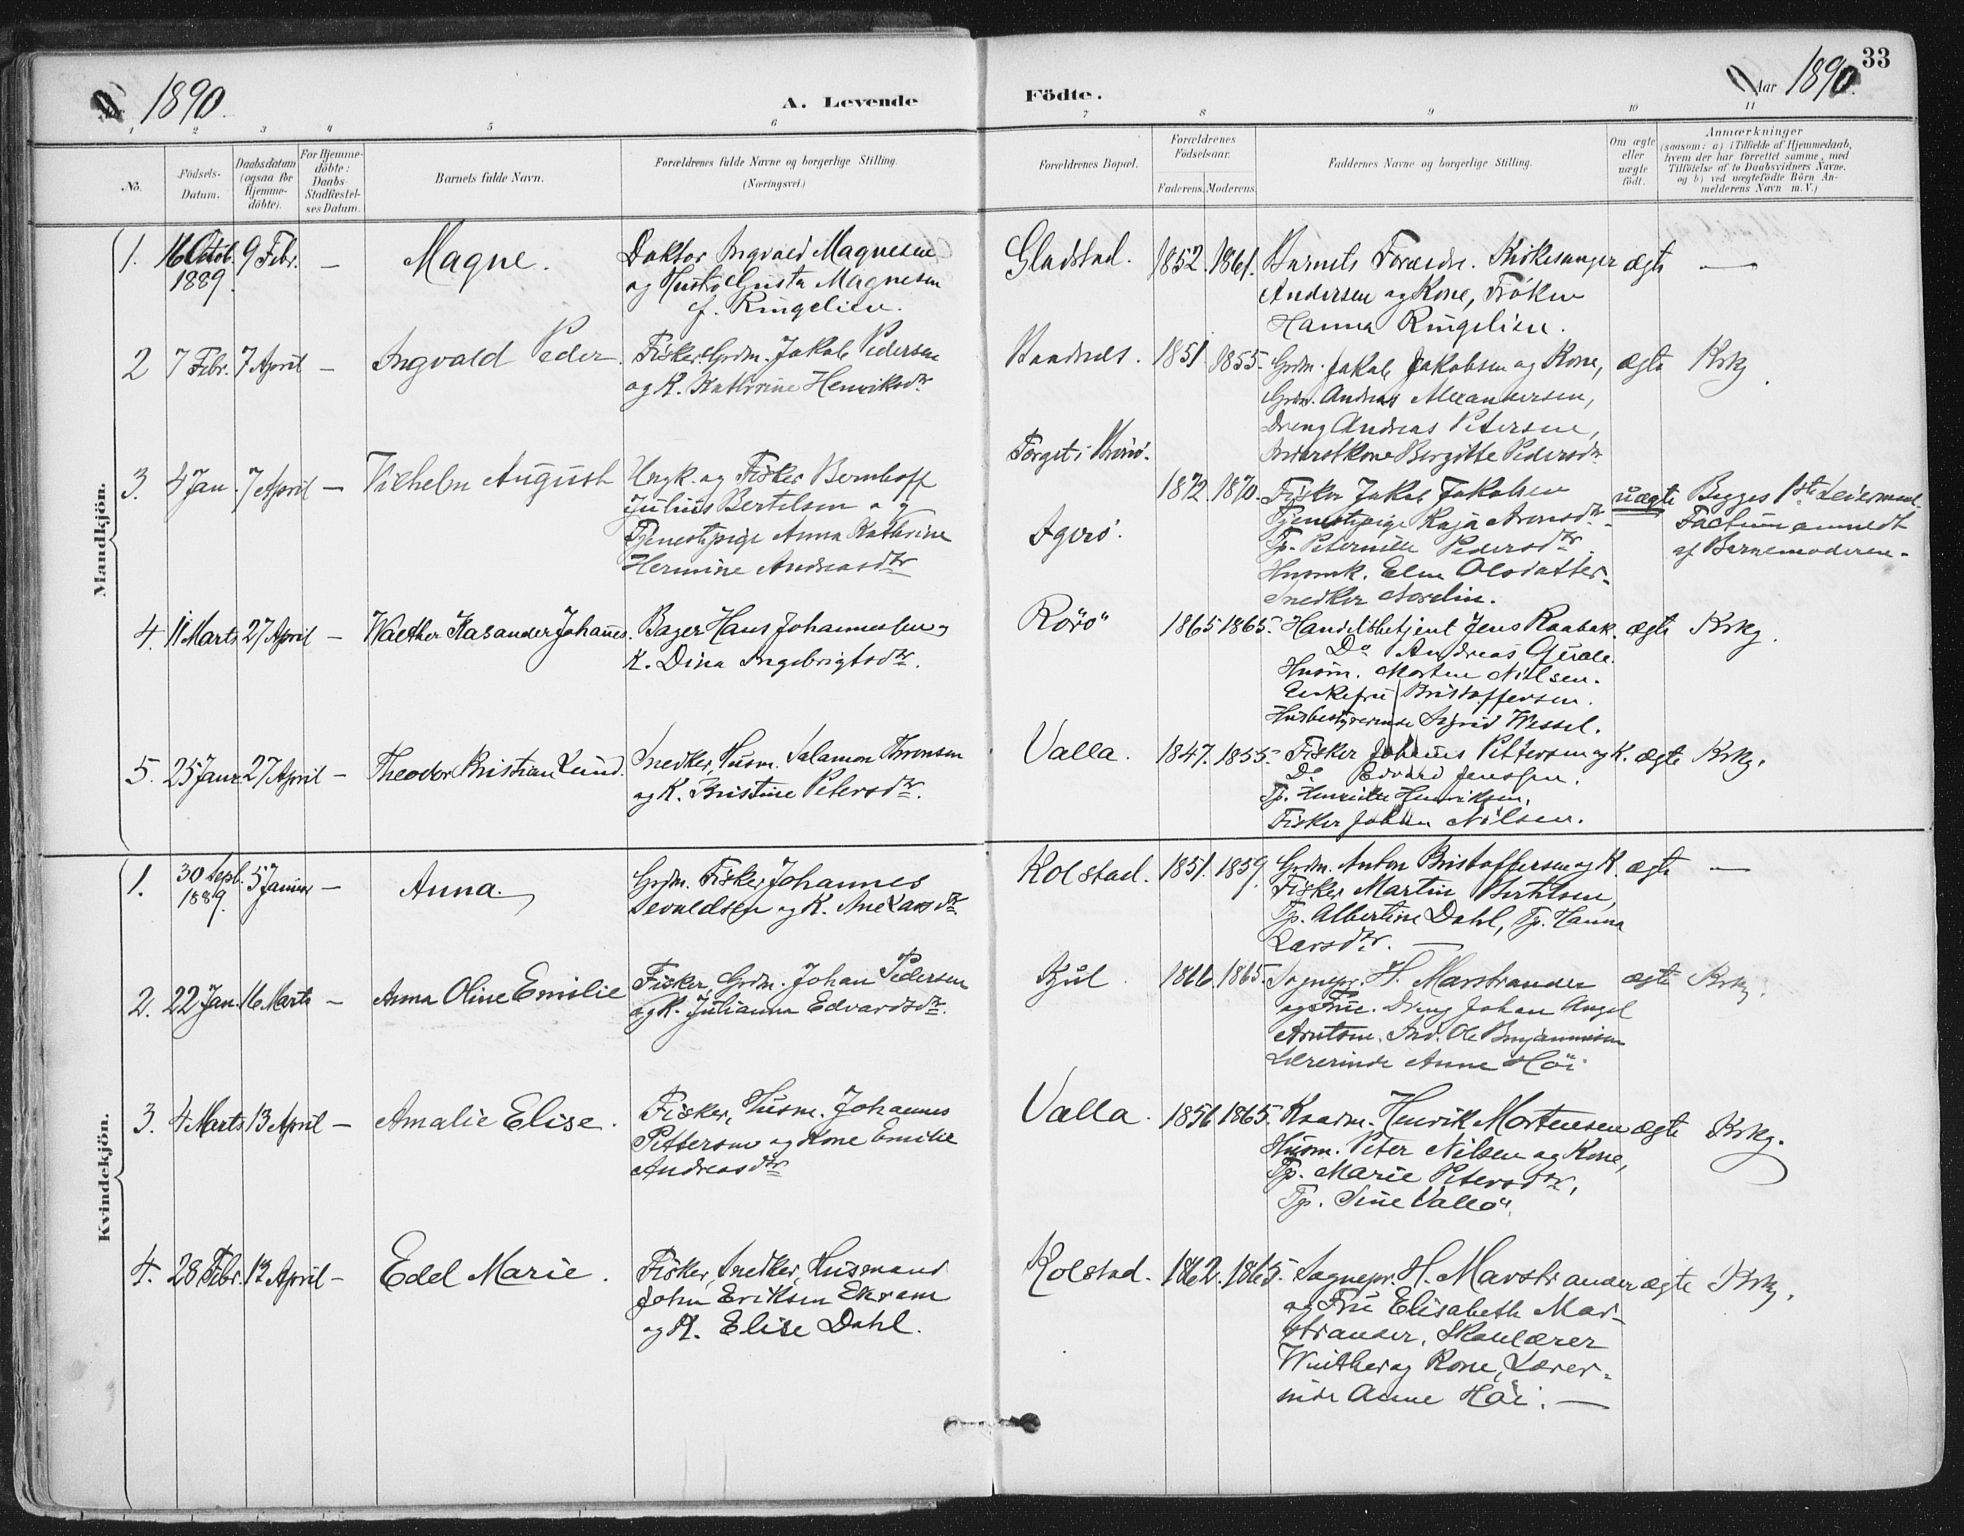 33
1890. A. Levende Födte. Aar 1890.
1 2 3 4 5 6 7 8 9 10 11
No.
Födsels-
Datum.
Daabsdatum
(ogsaa for
Hjemme-
döbte).
For Hjemme-
döbte:
Daabs-
Stadfæstel-
ses Datum.
Barnets fulde Navn.
Forældrenes fulde Navne og borgerlige Stilling.
(Næringsvei.)
Forældrenes Bopæl.
Forældrenes
Födselsaar.
Faderens. Moderens.
Faddernes Navne og borgerlige Stilling.
Om ægte
eller
uægte
födt.
Anmærkninger
(saasom: a) i Tilfælde af Hjemmedaab,
hvem der har forrettet samme, med
Tilföielse af to Daabsvidners Navne.
og b) ved uægtefödte Börn An-
melderens Navn m. V.)
Mandkjön.
1. 16 Octob. 9 Febr. –
1889.
Magne.
Doktor Ingvald Magnesen
og Hustro Gusta Magnesen
f. Ringelien.
Gladstad. 1852. 1861.
Barnets Forældre. Kirkesanger
Andersen og Kone, Frøken
Hanna Ringelien.
ægte —
2 7 Febr. 7 April –
Ingvald Peder.
Fisker, Grdm. Jakob Pedersen
og K. Kathrine Henriksdtr
1851. 1855.
Grdm. Jakob Jakobsen og Kone,
Grdm. Andreas Alexandersen,
Dreng Andreas Petersen,
Birgitte Pedersdtr
ægte Krkg.
3. 4 Jan. 7 April –
Vilhelm August
Ungk. og Fisker Bernhoff
Julius Bertelsen og
Tjenestpige Anna Kathrine
Hermine Andreasdtr
Torget i Brønø.
1872. 1870.
Fisker Jakob Jakobsen
Tjenestpige Kaja Aronsdtr.
Tp. Peternille Pedersdtr.
Husmk. Elen Olsdatter.
Snedker
uægte
Begges 1ste Leiermaal.
Factum anmeldt
af Barnemoderen.
4. 11 Marts 27 April –
Walther Kasander Johannes.
Bager Hans Johannessen og
K. Dina Ingebrigtsdtr.
Rörö 1865 1865.
Handelsbetjent Jens Raabak.
Do Andreas
Husm. Morten Nilsen.
Enkefru Kristoffersen.
Husbestyrerinde Sigrid Wessel.
ægte Krkg.
5. 25 Janr. 27 April –
Theodor Kristian Lund.
Snedker, Husm. Salamon Thronsen
og K. Kristine Petersdtr.
Valla. 1847. 1855.
Fisker Johannes Pettersen og K.
Do Edvard Jenssen.
Tp. Henriette Henriksen.
Fisker Johan Nilsen.
ægte Krkg.
Kvindekjön.
1. 30 Sept. 5 Januar –
1889.
Anna.
Grdm. Fisker Johannes
Sevaldsen og K. Ane Larsdtr.
Kolstad. 1851. 1859.
Grdm. Anton Kristoffersen og K.
Fisker Martin Bertilsen,
Tp. Albertine Dahl, Tp. Hanna
Larsdtr. —
ægte —
2. 22 Jan. 16 Marts –
Anna Oline Emilie
Fisker, Grdm. Johan Pedersen
og K. Julianna Edvardsdtr.
Kjul. 1866. 1865.
Sognepr. H. Marstrander
og Frue. Dreng Johan Angel
Arntsen. Ole Benjaminsen
Lærerinde Anne Höi.
ægte Krkg.
3. 4 Marts 13 April –
Amalie Elise.
Fisker, Husm. Johannes
Pettersen og Kone Emilie
Andreasdtr
Valla. 1856 1865.
Kaarm. Henrik Mortensen
Husm. Peter Nilsen og Kone,
Tp. Marie Petersdtr,
Tp. Sine Vallö.
ægte Krkg.
4. 28 Febr. 13 April –
Edel Marie.
Fisker, Snedker, Husmand
John Eriksen Ekrem
og K. Elise Dahl.
Kolstad. 1862. 1865.
Sognepr. H. Marstrander
og Fru Elisabeth Mar-
strander, Skolelærer
Winther og Kone, Lærer-
inde Anne Höi. —
ægte Krkg.